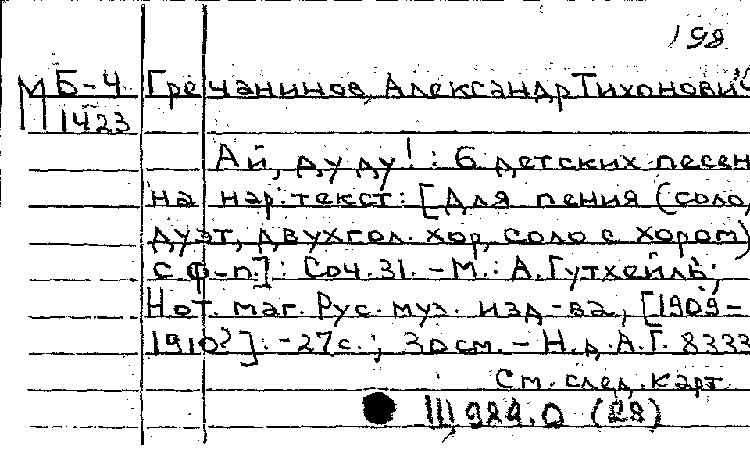 198
М Б-4 Гречанинов, Александр Тихонович
1423
Ай, ду ду! : 6 детских песен
на нар. текст: [Для пения (соло,
дуэт, двухгол. хор, соло с хором)
с ф-п.]: Соч. 31. - М.: А. Гутхейль;
Нот. маг. Рус. муз. изд-ва, [1909-
1910?]. - 27с.; 30см. - Н.д. А.Г. 8333
См. след. карт
III, 984.0 (28)